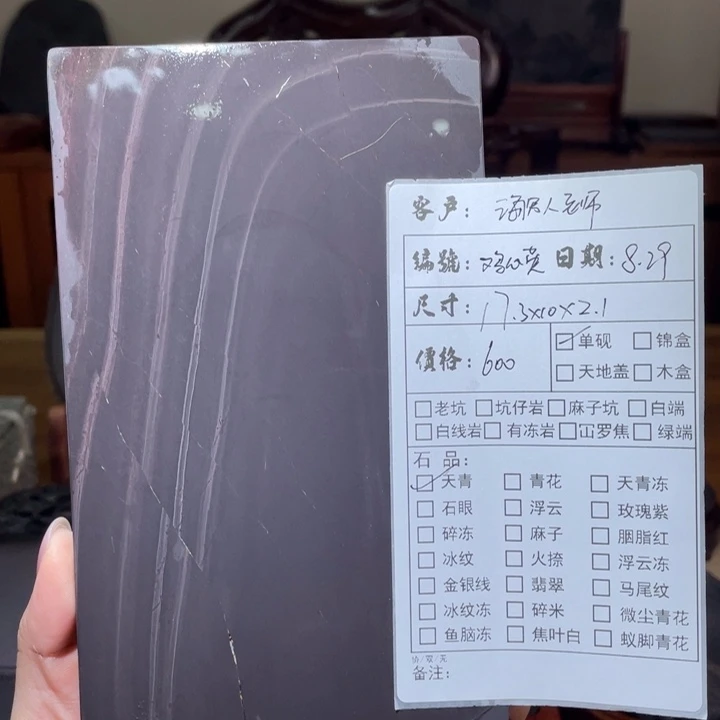 客户：
编號： 日期：8.29
尺寸：17.3×10×2.1
價格：600
单砚 锦盒
天地盖 木盒
老坑 坑仔岩 麻子坑 白端
白线岩 有冻岩 冚罗焦 绿端
石品：
天青 青花 天青冻
石眼 浮云 玫瑰紫
碎冻 麻子 胭脂红
冰纹 火捺 浮云冻
金银线 翡翠 马尾纹
冰纹冻 碎米 微尘青花
鱼脑冻 焦叶白 蚁脚青花
备注：